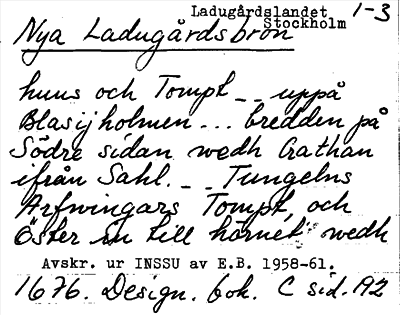 Ladugårdslandet 1-3
Stockholm
Nya Ladugårdsbron
huus och Tompt _ _ uppå
Blasijholmen ... bredden på
Södre sidan wedh Gathan
ifrån Sahl. _ _ Tungelns
Arfwingars Tompt, och
Öster in till hörnet wedh
Avskr. ur INSSU av E.B. 1958-61.
1676. Design. bok. C sid. 192